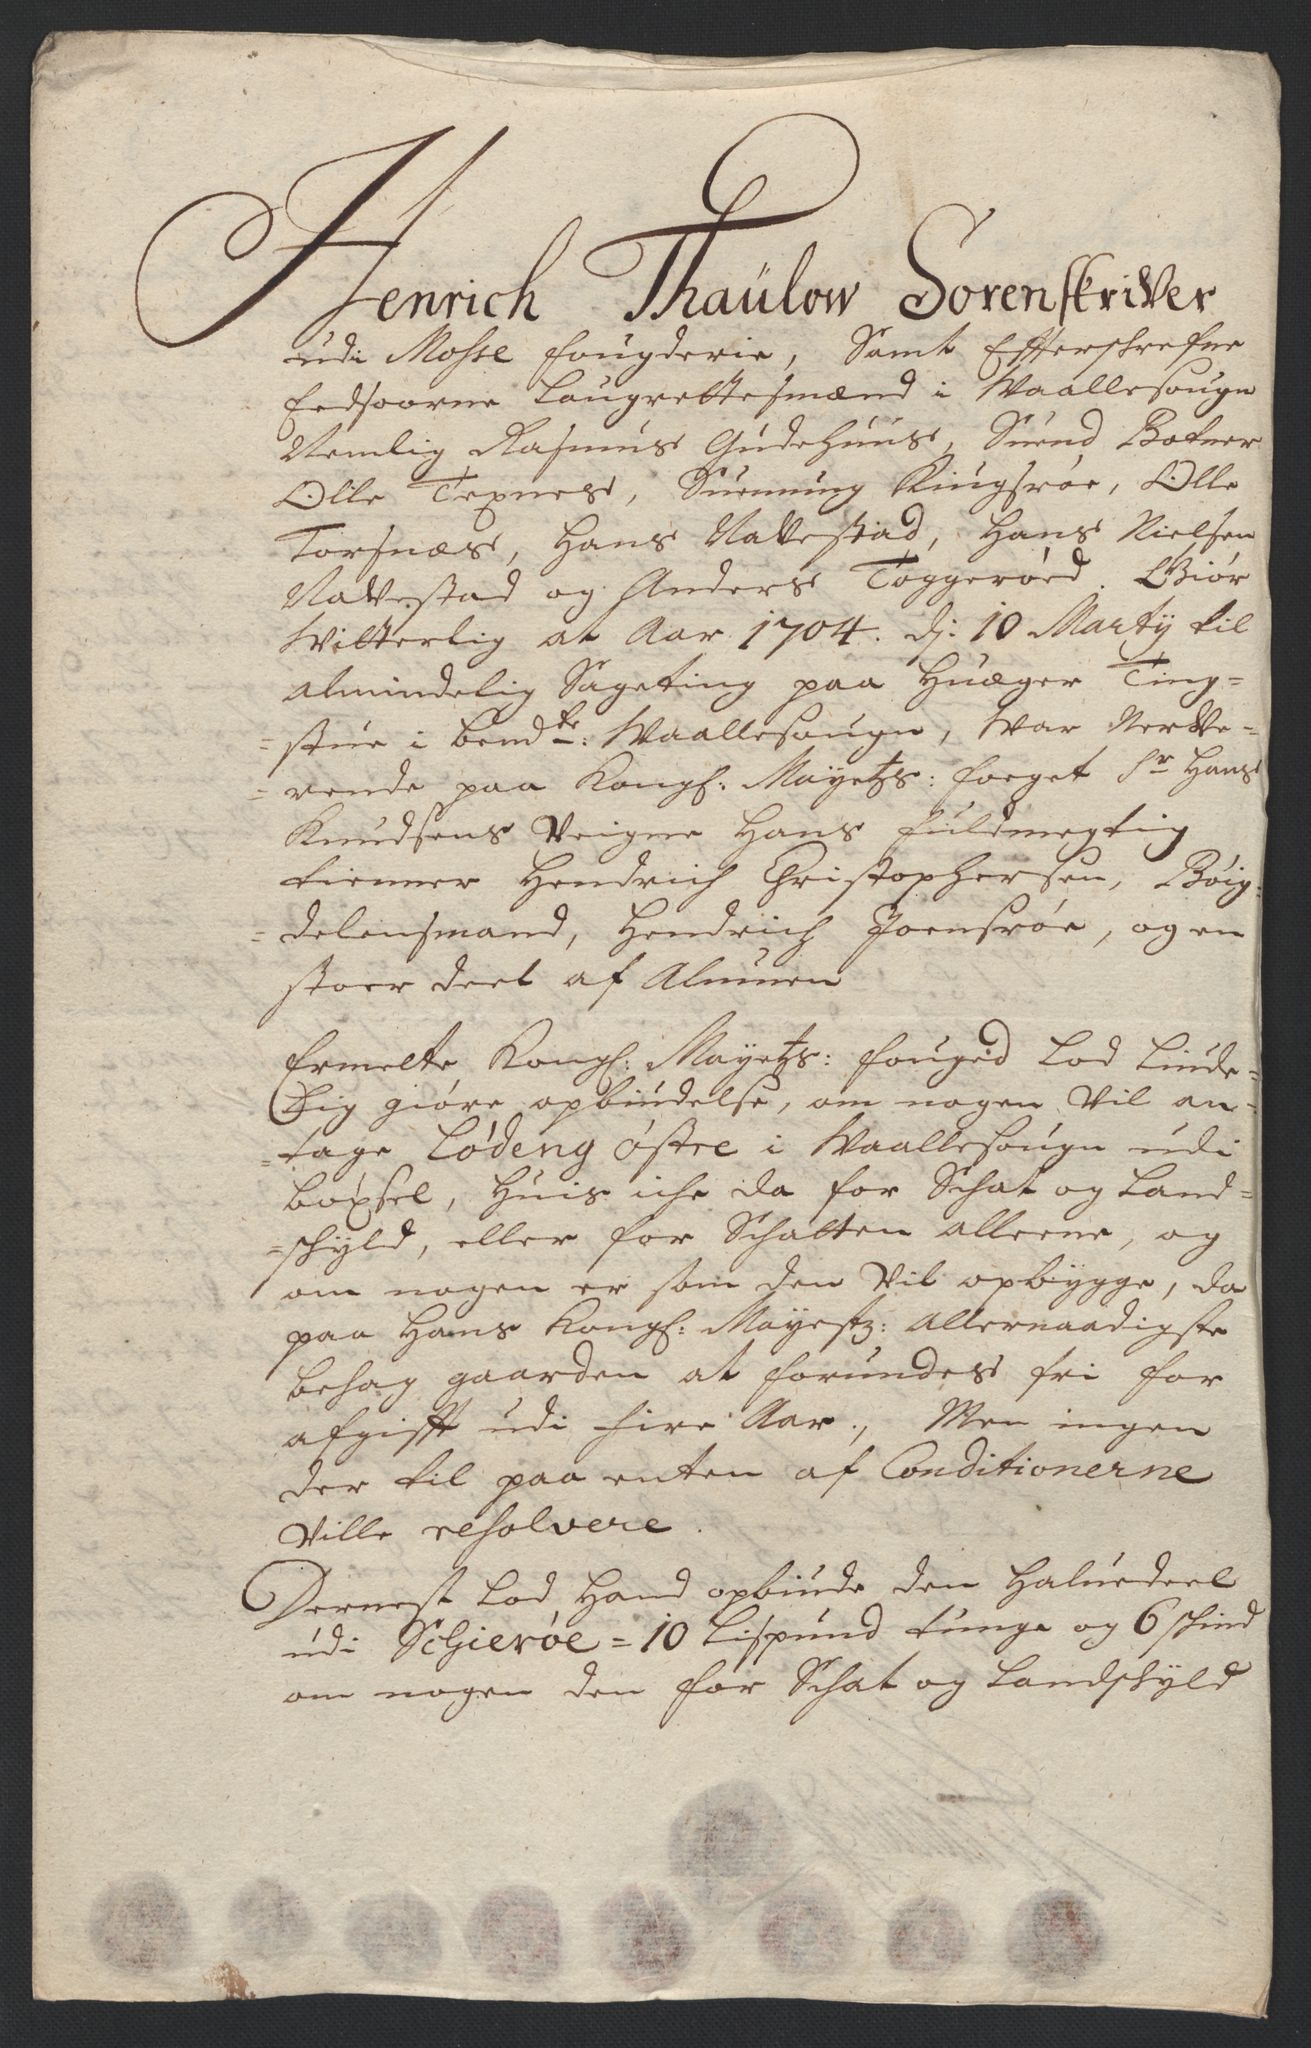 Henrich Thaülow Sorenskriver
udi Mosse fougderie, Samt Efterschrefne
Eedsoorne Laugrettesmænd i Waallesougn
Nemlig Rasmus Gudehuus, Suend Botner
Olle Texnes, Suenung Kingsrøe, Olle
Torsnæs, Hans Navestad, Hans Nielsen
Navestad og Anders Toggerøed. Giør
Witterlig at Aar 1704. dj: 10 Martij til
almindelig Sageting paa Huæger Ting-
-stue i bemdte: Waallesougn, war Nerve-
-rende paa Kongl: Mayetzs: foeget Sr Hans
Knudsens Veigne Hans fuldmegtig
tienner Hendrich Christophersen, Bøig-
-delensmand, Hendrich Joensrøe, og en
stoer deel af Almuen
Ermelte Kongl: Mayetzs: fouged Lod Liude-
-lig giøre opbiudelse, om nogen Vil an-
-tage Lødeng østre i Waallesougn udi
böxsel, Huis iche da for Schat og Land-
-schyld, eller for Schatten alleene, og
om nogen er som den Vil opbygge, da
paa Hans Kongl: Mayestz: allernaadigste
behag gaarden at forundes fri for
afgifft udi fire Aar., Men ingen
der til paa enten af Conditionerne
Ville resolvere.
Dernest Lod Hand opbiude den Halvedeel
udi Schierøe = 10 Lispund tunge og 6 schind
om nogen den for Schat og Landschyld